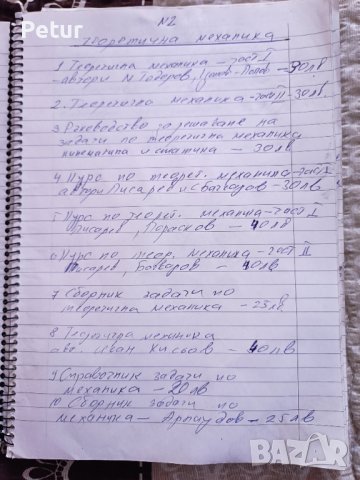 Petur
N2
Теоретична механика
1. Теоретична механика - част I
- автори М. Тодоров, Попов - 30лв
2. Теоретична механика - част II - 30лв.
3 Ръководство за решаване на
задачи по теоретична механика
кинематика и статика
- 30лв
4 Курс по теорет. механика - част I
автори Писарев и Богваров - 30лв
5 Курс по теорет. механика - част I
Писарев, Парасков - 40лв
6 Курс по теор. механика - част II
Писарев, Богваров - 40лв
7 Сборник задачи по
теоретична механика - 25лв
8 Теоретична механика
авт. Иван Кисьов - 40лв
9 Справочник задачи по
механика - 20лв
10 Сборник задачи по
механика - Арнаудов - 25лв
BAZAR.BG